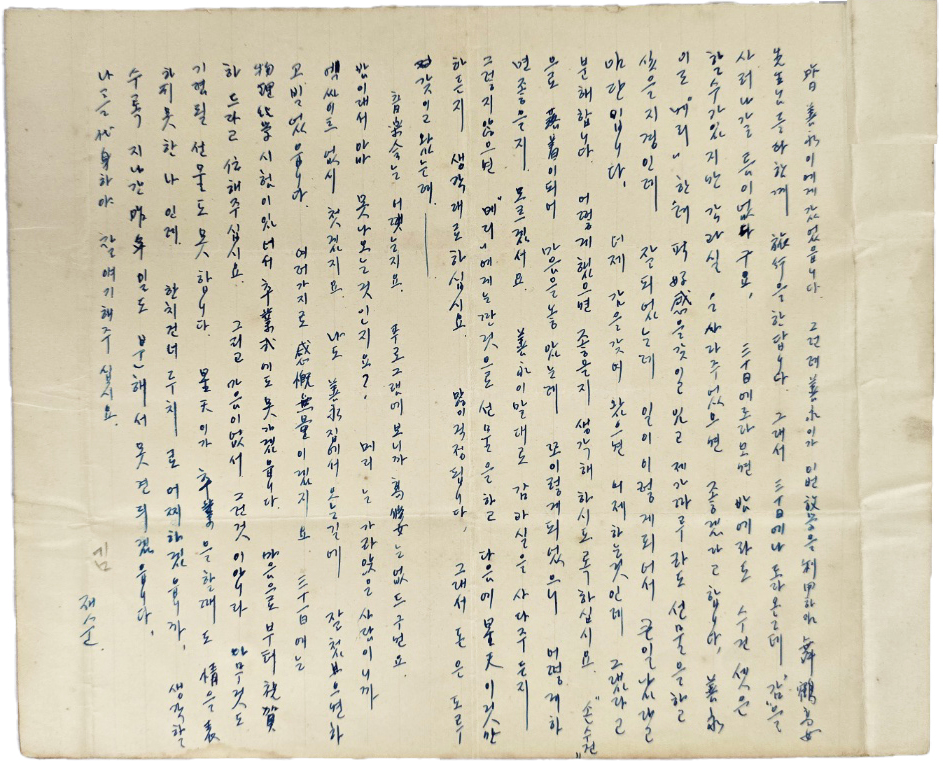 昨日 善永이에게 갔었읍니다. 그런데 善永이가 이번 放學을 利用하여 舞鶴高女
先生님들과 함께 旅行을 한답니다. 그래서 三十日에나 도라온는데 "감"을
사러 나갈 틈이 없다구요. 三十日에 도라오면 밤에라도 수건 셋은
할 수가 있지만 감과 실을 사다 주었으면 좋겠다고 합니다. 善永
이로 "메리" 한테 퍽 好感을 갖일 있고 제가 따루라도 선물을 하고
싶을 지경인데 잘 되었는데 일이 이렇게 되어서 큰일났다고
입니다. 감을 갖어 왔으면 어제 하는 것인데 그랬다고
분해합니다. 어떻게 했으면 좋을지 생각해 하시도록 하십시요. "손수건"
으로 落着이 되어 마음을 놓았는데 또 이렇게 되었으니 어떻게 하
면 좋을지 모르겠서요. 善永이 말대로 감과 실을 사다 주든지
그렇지 않으면 "메리"에게는 딴 것으로 선물을 하고 다음에 星天이 것만
하든지 생각대로 하십시요. 많이 걱정됩니다. 그래서 돈은 도루
갖이고 왔는데 ——
音樂會는 어땟는지요. 푸로그램에 보니까 高女는 없드구먼요.
밤이래서 아마 못 나오는 것인지요? 메리는 가라앉은 사람이니까
엑싸이트 없시 첫겠지요. 나도 善永 집에서 오는 길에 잘 첫으면 하
고 빌었읍니다. 여러가지로 感慨無量이겠지요. 三十一日에는
物理化學 시험이 있어서 卒業式에도 못 가겠읍니다. 마음으로부터 祝賀
하드라고 傳해주십시요. 그리고 마음이 없서 그런 것이 아니라 아무것도
기렴될 선물도 못 합니다. 星天이가 卒業을 할 때도 情을 表
하지 못한 나인데. 한치 건너 두치로 어찌 하겠읍니까. 생각할
수록 지나간 昨年 일도 분해서 못 견듸겠읍니다.
나를 代身하야 잘 얘기해 주십시요.
김 재순.